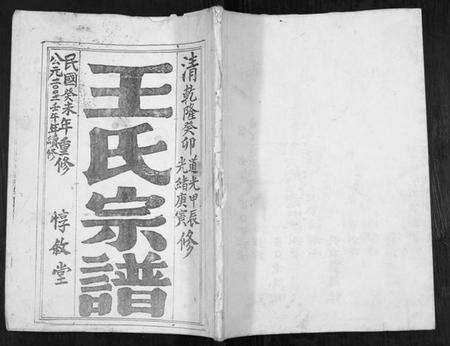 清乾隆癸卯 道光甲辰
光緒庚寅 修
王氏宗譜
民國癸未年重修
公元二〇〇二壬午年續修
惇敘堂